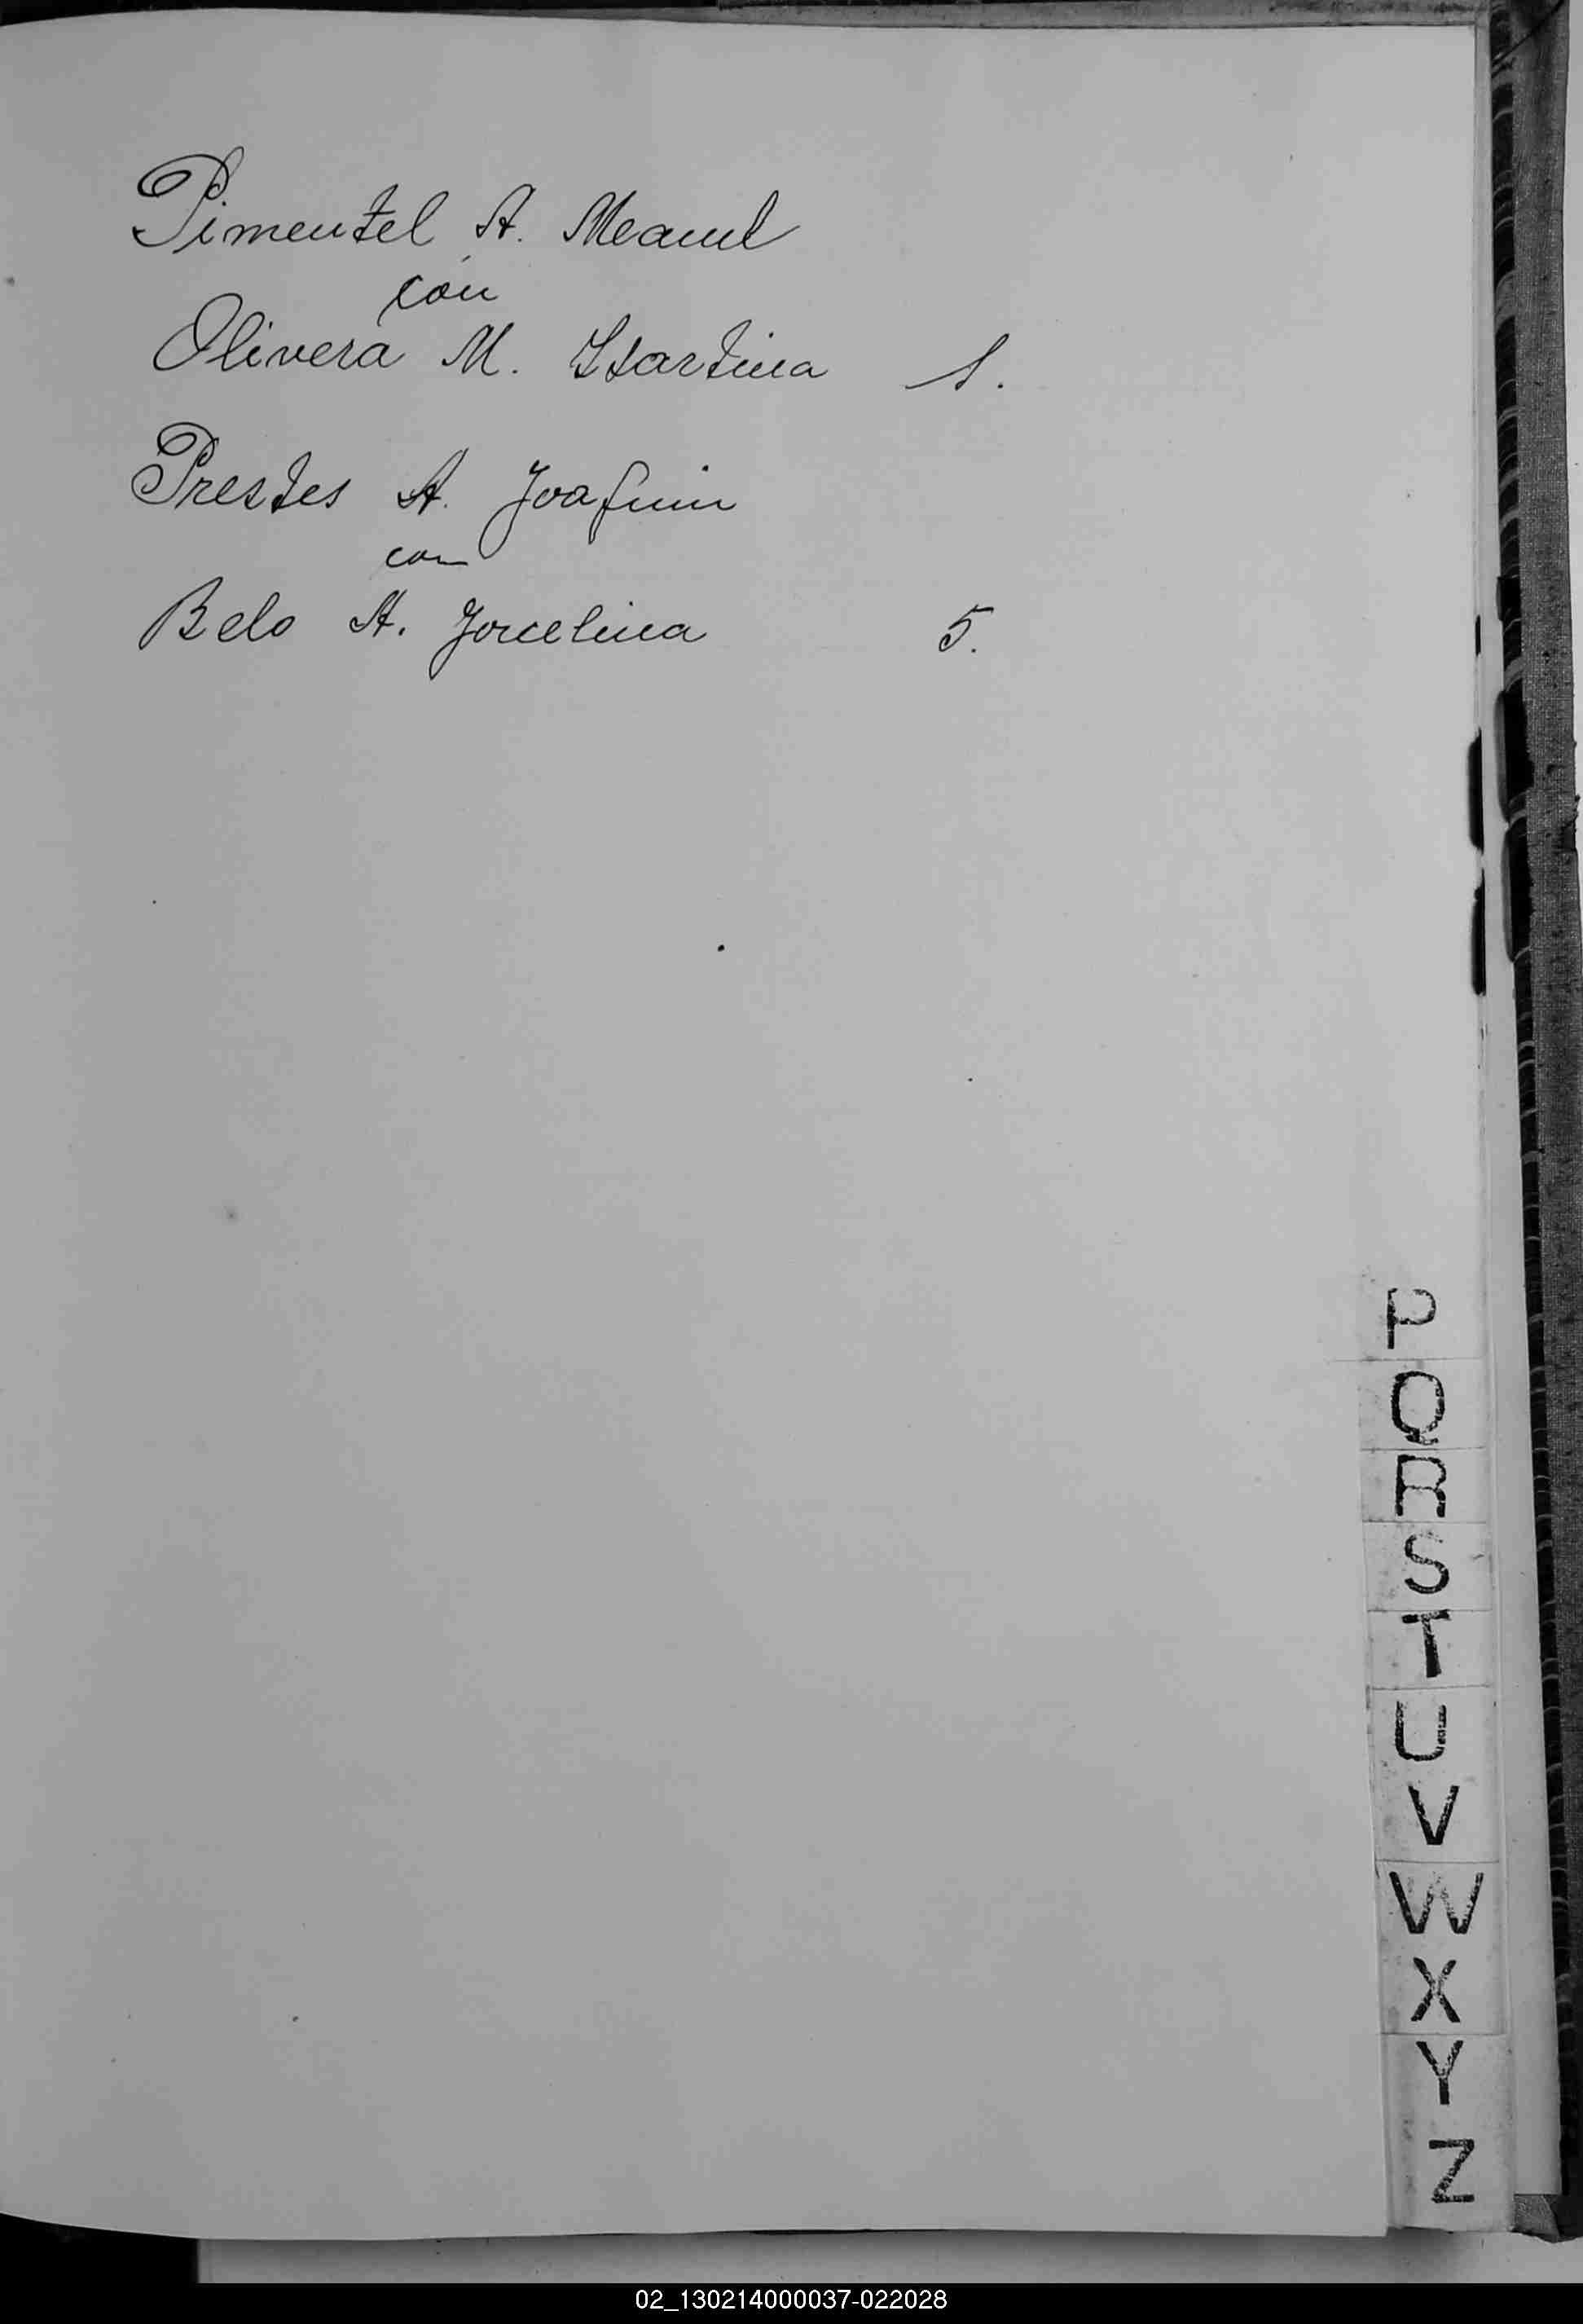 Pimentel A. Manuel
con
Olivera M. Martina 1.
Prestes A. Joaquin
con
Belo A. Jouelina 5.
P
Q
R
S
T
U
V
W
X
Y
Z
02_130214000037-022028